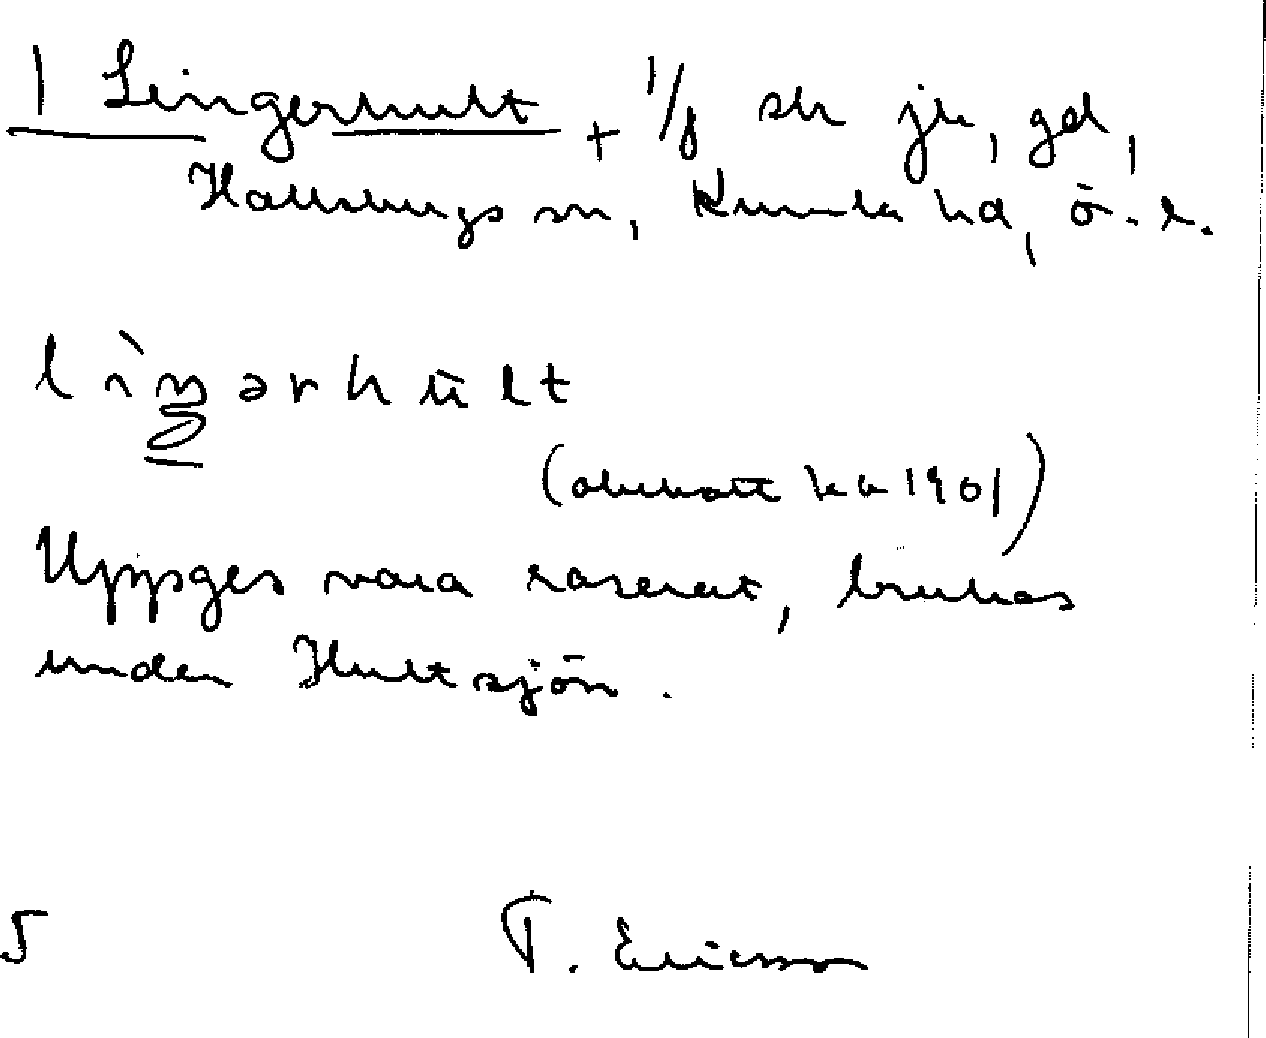 1 Lingerhult + 1/8 sk jb, gd,
Hallsbergs sn, Kumla hd, ö. l.
lìŋərhūlt
1901)
Uppges vara raserat, brukas
under Hultsjön.
5 T. Ericsson